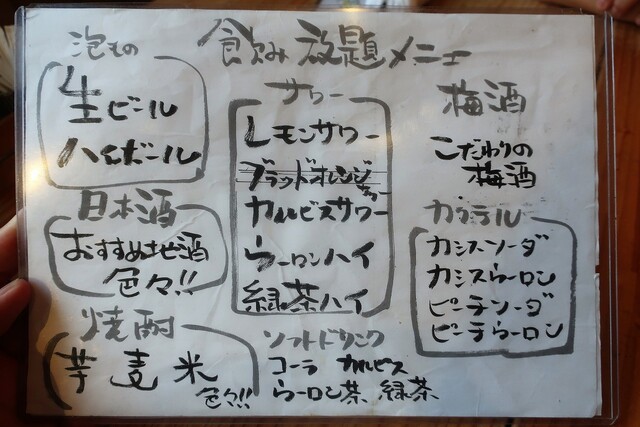 飲み放題メニュー
泡もの
生ビール
ハイボール
日本酒
おすすめ地酒
色々!!
焼酎
芋 麦 米
色々!!
サワー
レモンサワー
ブラッドオレンジ
カルピスサワー
ウーロンハイ
緑茶ハイ
ソフトドリンク
コーラ カルピス
ウーロン茶 緑茶
梅酒
こだわりの
梅酒
カクテル
カシスソーダ
カシスウーロン
ピーチソーダ
ピーチウーロン